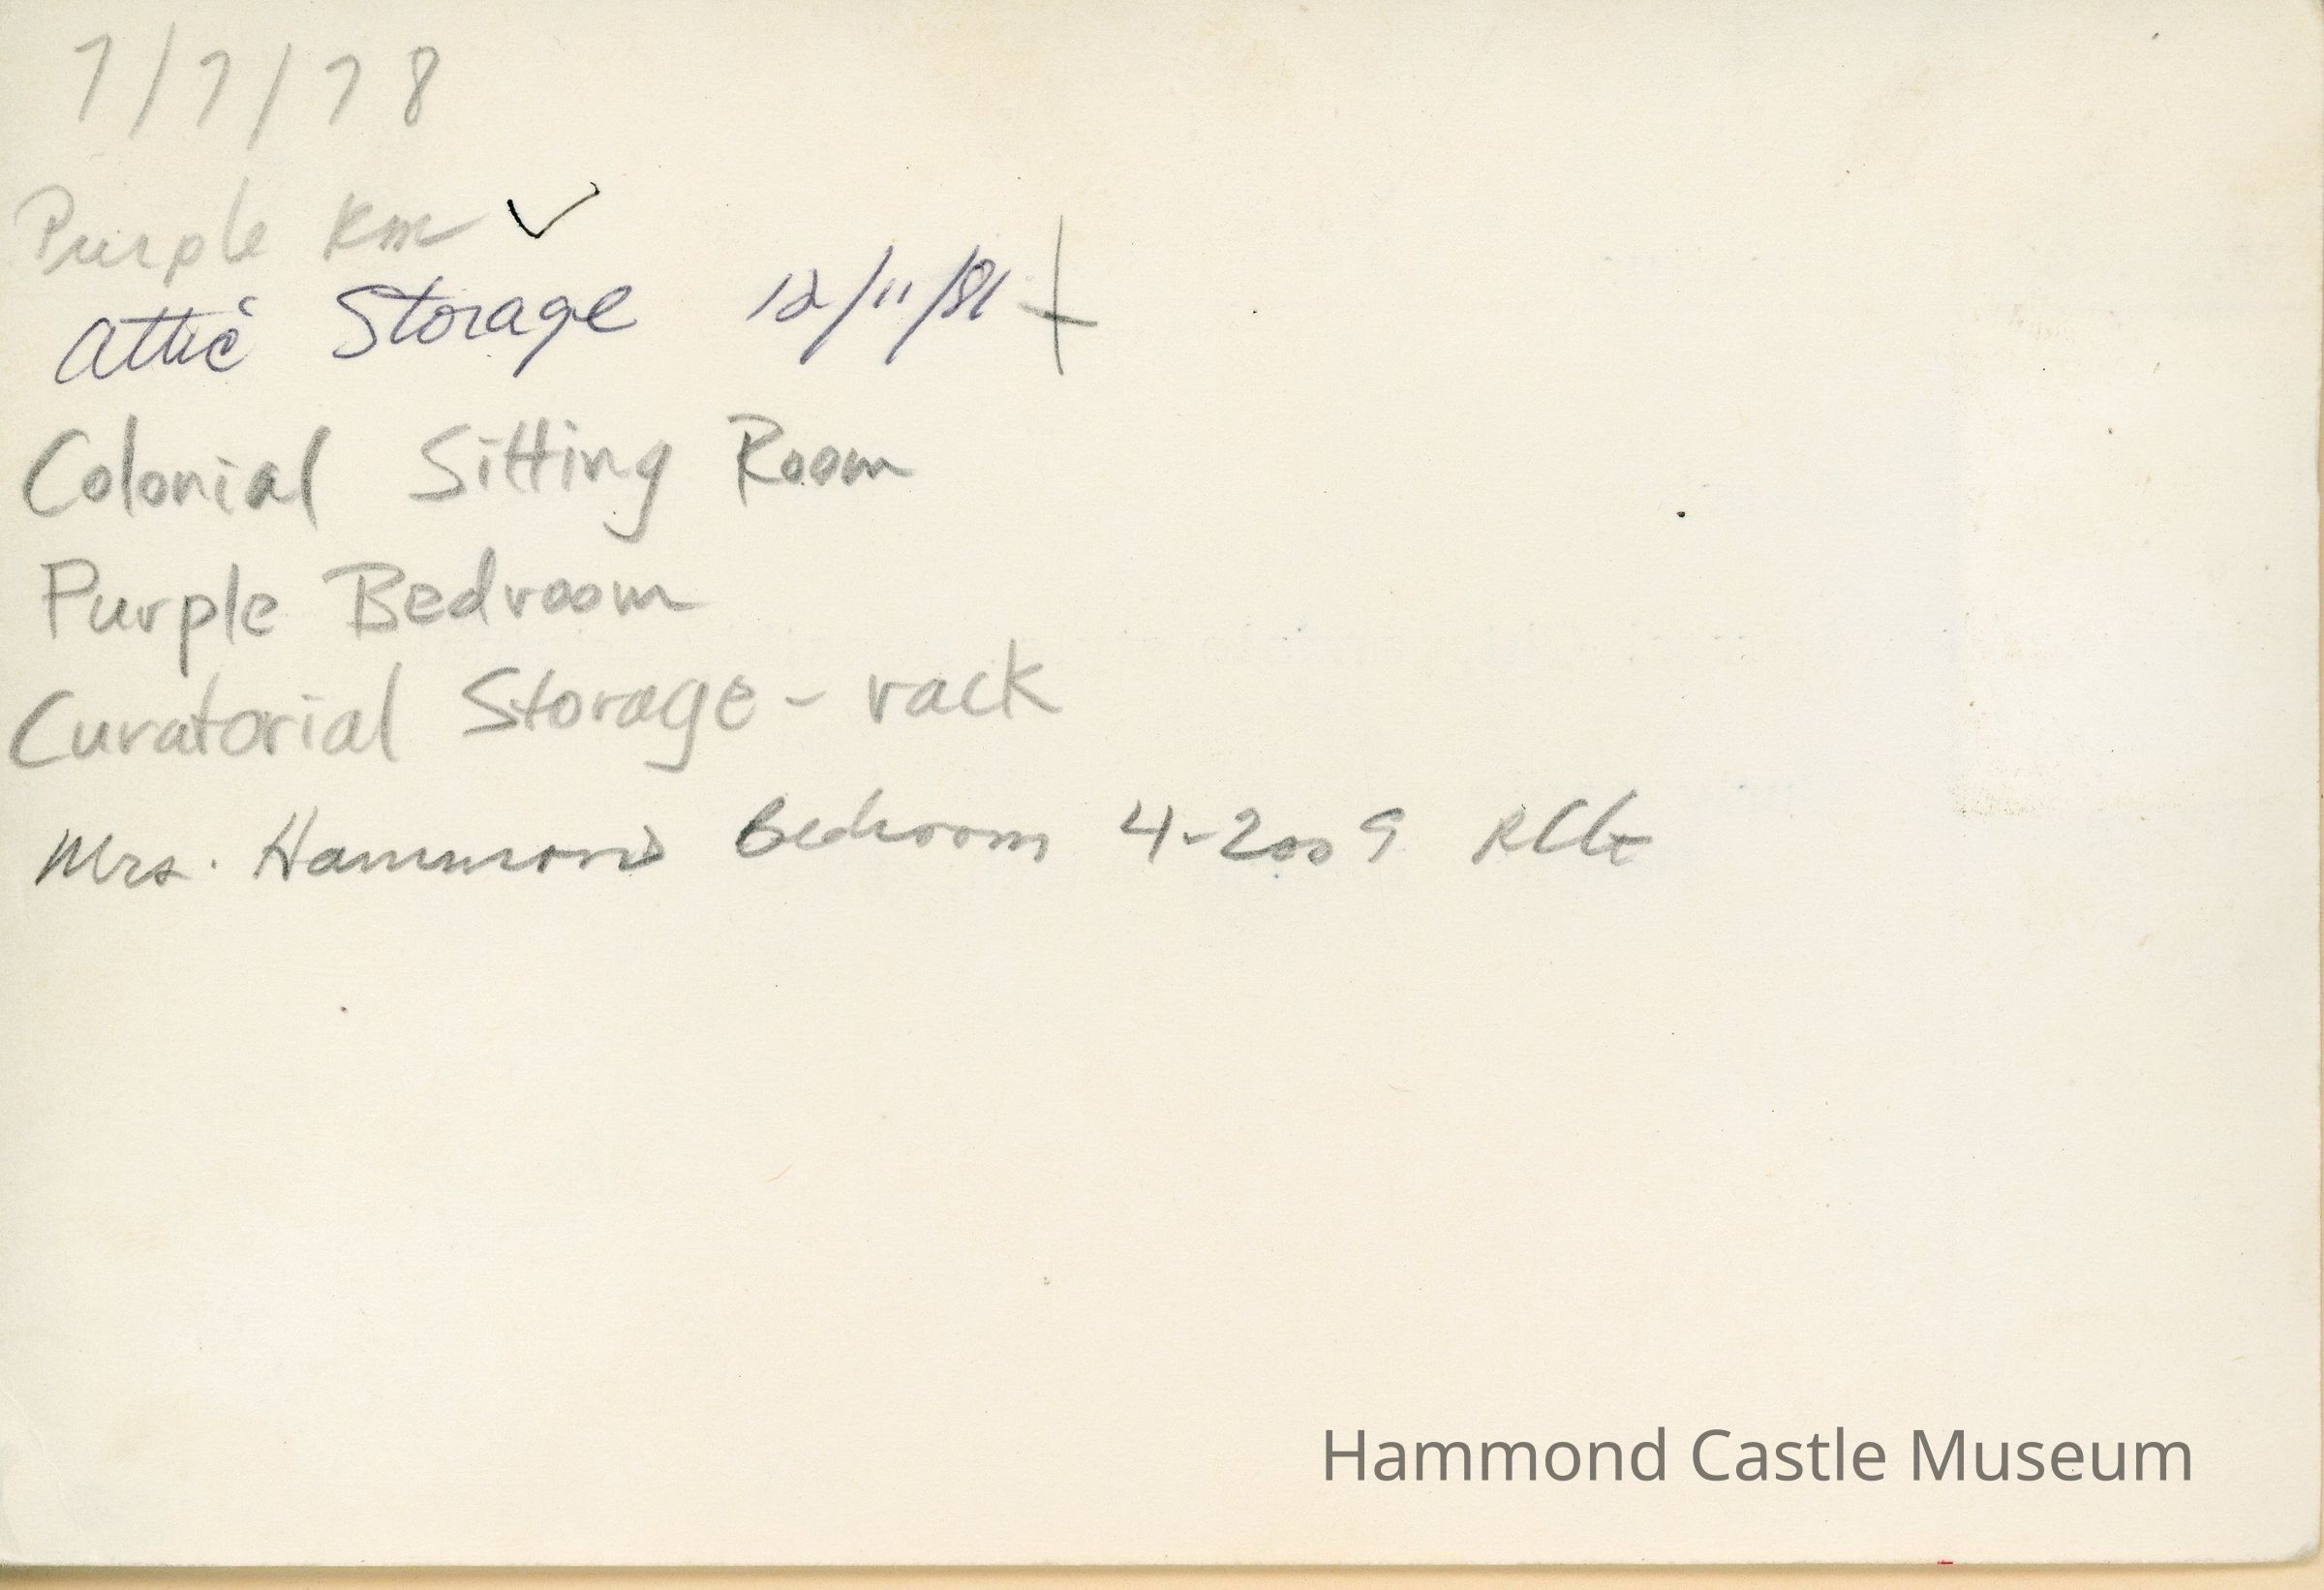 7/7/78
Purple Rm ✓
Attic Storage 12/11/81 +
Colonial Sitting Room
Purple Bedroom
Curatorial Storage - rack
Mrs. Hammond Bedroom 4-2009
Hammond Castle Museum